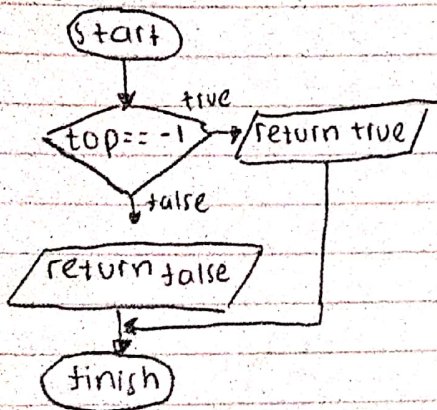 start
true
top == -1
return true
false
return false
finish